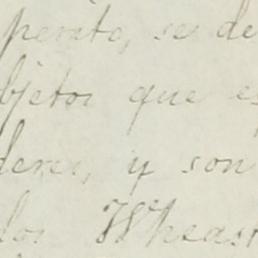 perito, se de
bjetos que es
deres, y son
los Wheast